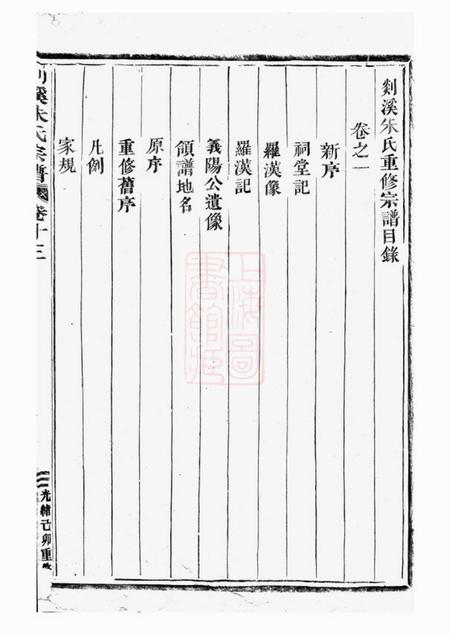 剡溪朱氏重修宗譜目錄
卷之一
新序
祠堂記
羅漢像
羅漢記
義陽公遺像
領譜地名
原序
重修舊序
凡例
家規
剡溪朱氏宗譜
卷十三
光緒己卯重
上海圖書館藏